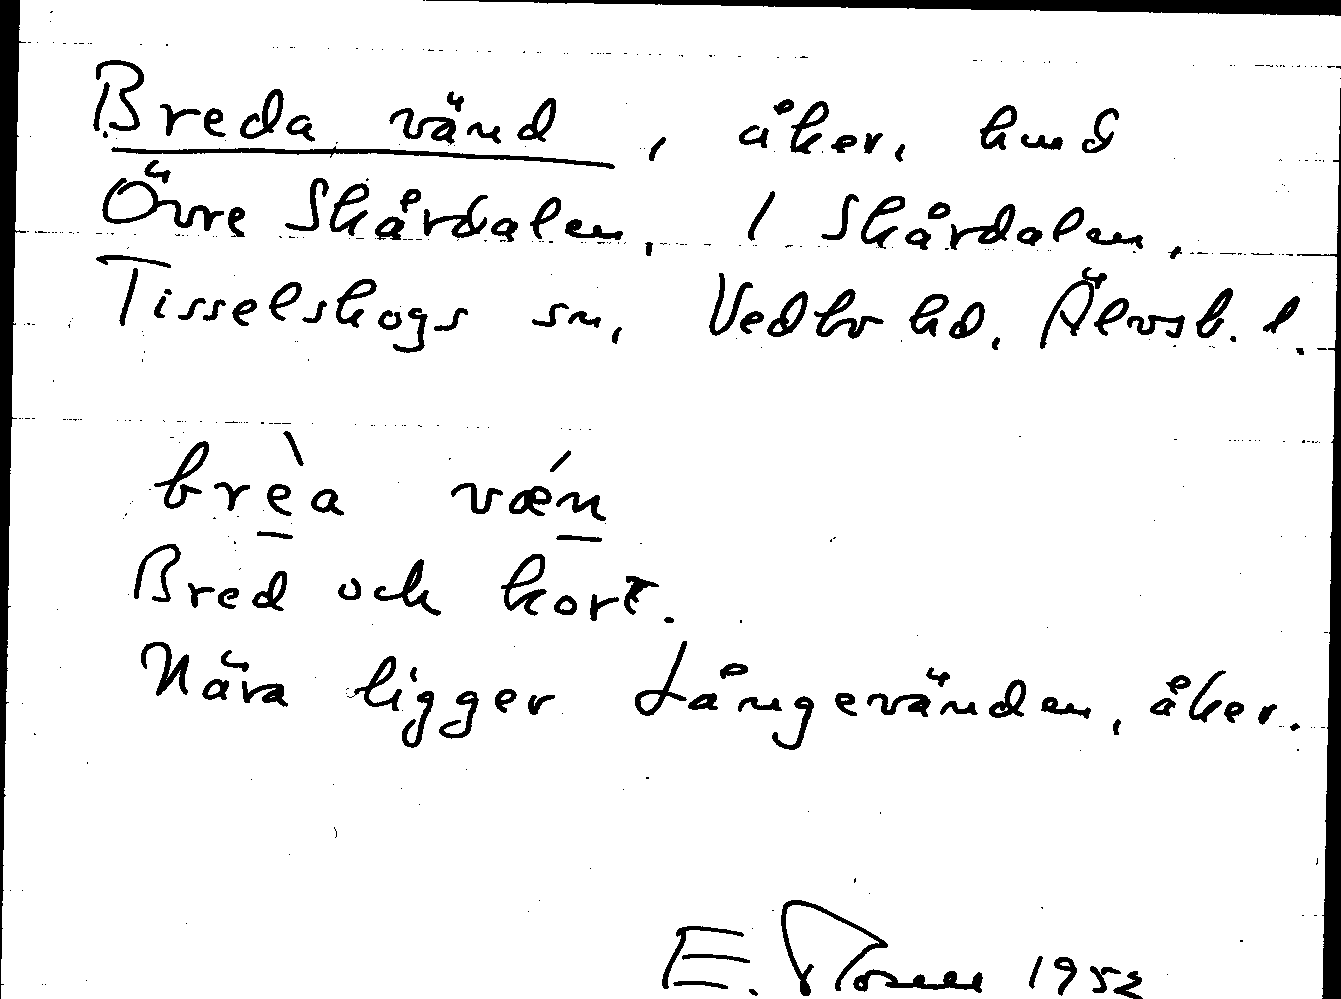 Breda vänd, åker, hmd
Övre Skårdalen, 1 Skårdalen,
Tisselskogs sn, Vedbo hd, Älvsb. l.
brèa vǽn
Bred och kort.
Nära ligger Långevänden, åker.
E. 1952